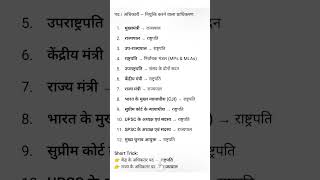 पद / अधिकारी – नियुक्ति करने वाला प्राधिकरण
1. मुख्यमंत्री → राज्यपाल
2. राज्यपाल → राष्ट्रपति
3. उप-राज्यपाल → राष्ट्रपति
4. राष्ट्रपति → निर्वाचक मंडल (MPs & MLAs)
5. उपराष्ट्रपति → संसद के दोनों सदन
6. केंद्रीय मंत्री → राष्ट्रपति
7. राज्य मंत्री → राज्यपाल
8. भारत के मुख्य न्यायाधीश (CJI) → राष्ट्रपति
9. सुप्रीम कोर्ट के न्यायाधीश → राष्ट्रपति
10. UPSC के अध्यक्ष एवं सदस्य → राष्ट्रपति
11. SPSC के अध्यक्ष एवं सदस्य → राज्यपाल
12. मुख्य चुनाव आयुक्त → राष्ट्रपति
Short Trick:
👉 केंद्र के अधिकतर पद → राष्ट्रपति
👉 राज्य के अधिकतर पद → राज्यपाल
5. उपराष्ट्रपति
6. केंद्रीय मंत्री
7. राज्य मंत्री
8. भारत के मुख्य
9. सुप्रीम कोर्ट
→ राष्ट्रपति